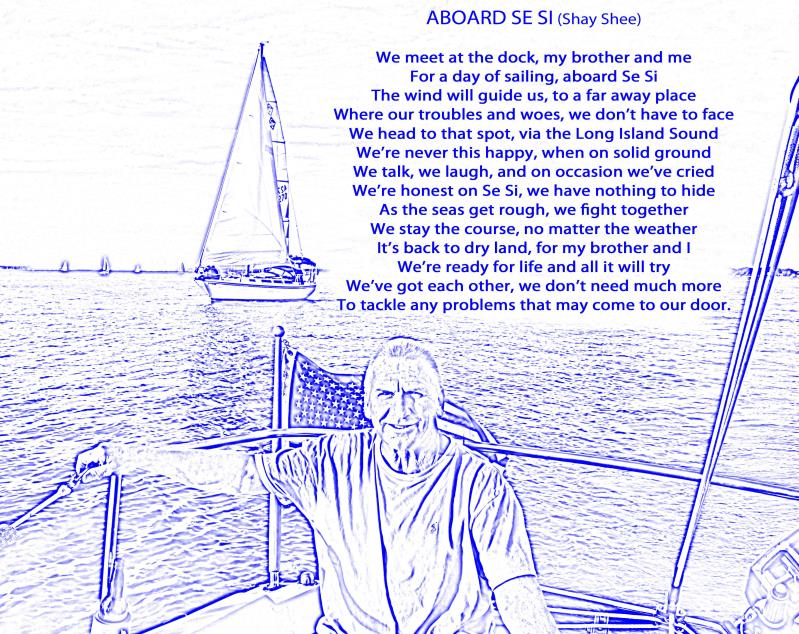 ABOARD SE SI (Shay Shee)
We meet at the dock, my brother and me
For a day of sailing, aboard Se Si
The wind will guide us, to a far away place
Where our troubles and woes, we don't have to face
We head to that spot, via the Long Island Sound
We're never this happy, when on solid ground
We talk, we laugh, and on occasion we've cried
We're honest on Se Si, we have nothing to hide
As the seas get rough, we fight together
We stay the course, no matter the weather
It's back to dry land, for my brother and I
We're ready for life and all it will try
We've got each other, we don't need much more
To tackle any problems that may come to our door.